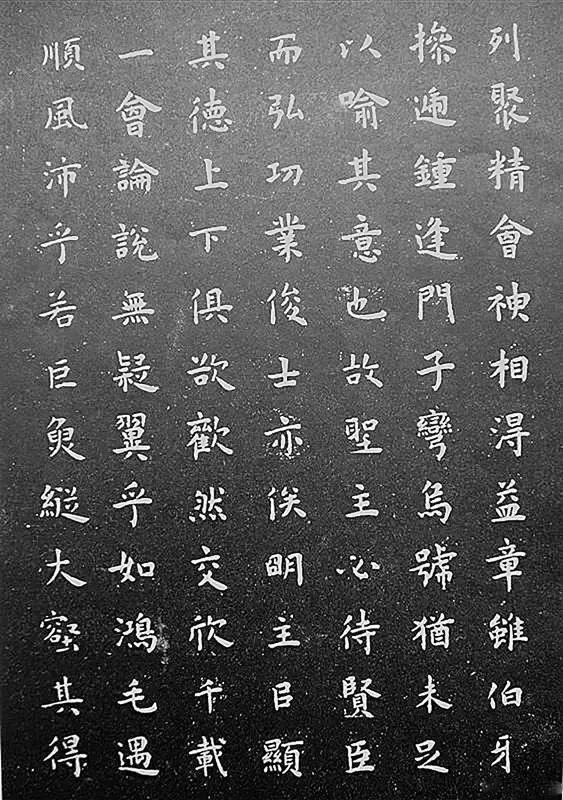 列聚精會神相得益章雖伯牙
操遞鍾逢門子彎烏號猶未足
以喻其意也故聖主必待賢臣
而弘功業俊士亦俟明主㠯顯
其德上下俱欲歡然交欣千載
一會論說無疑翼乎如鴻毛遇
順風沛乎若巨魚縱大壑其得